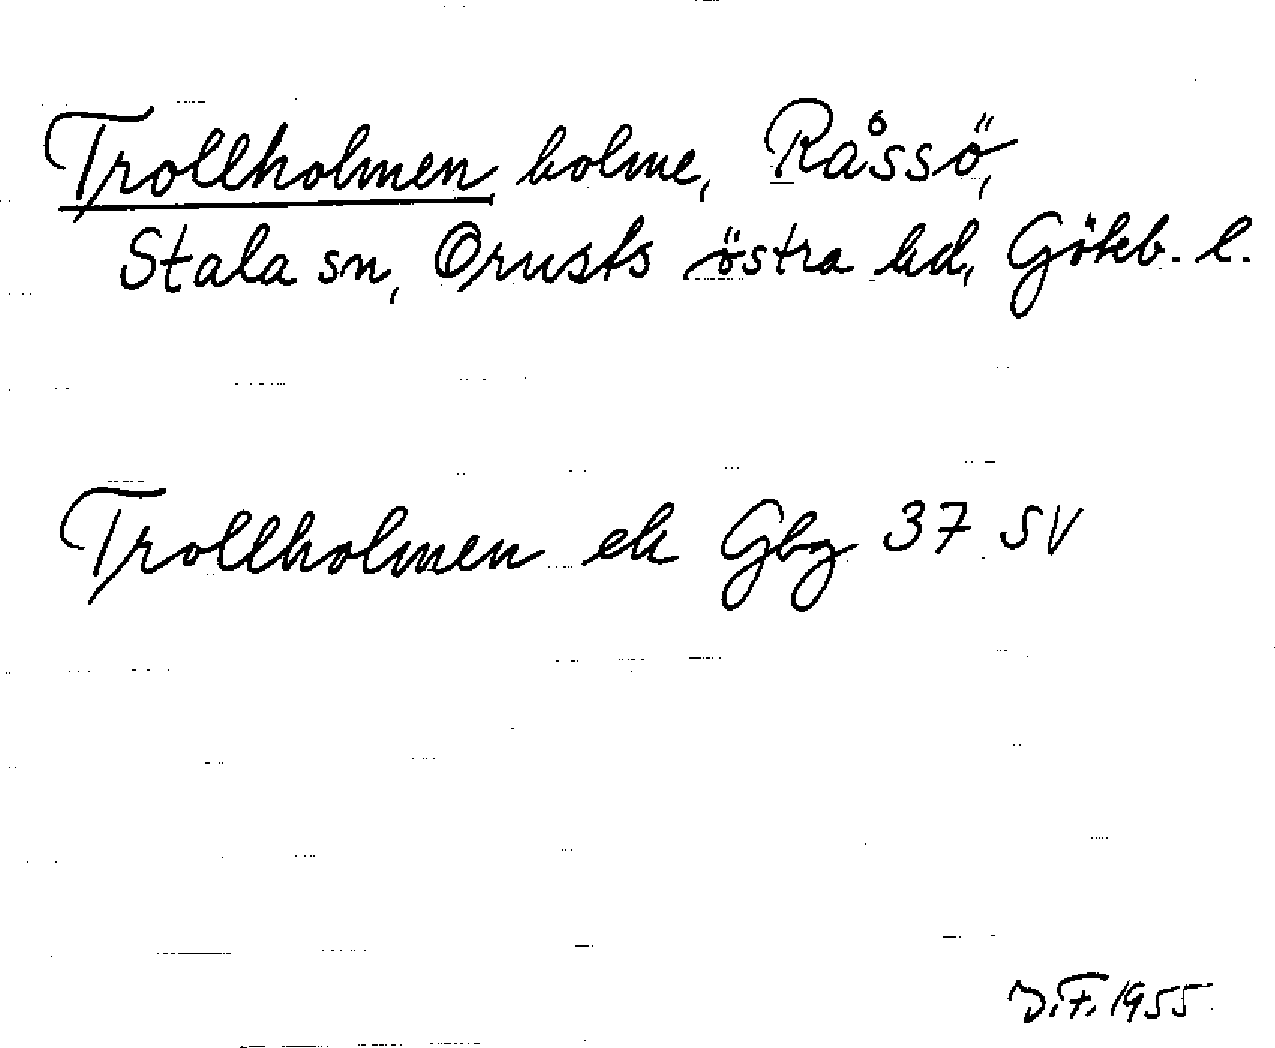 Trollholmen, holme, Råssö,
Stala sn, Orusts östra hd, Göteb. l.
Trollholmen ek Gbg 37 SV
D.F. 1955